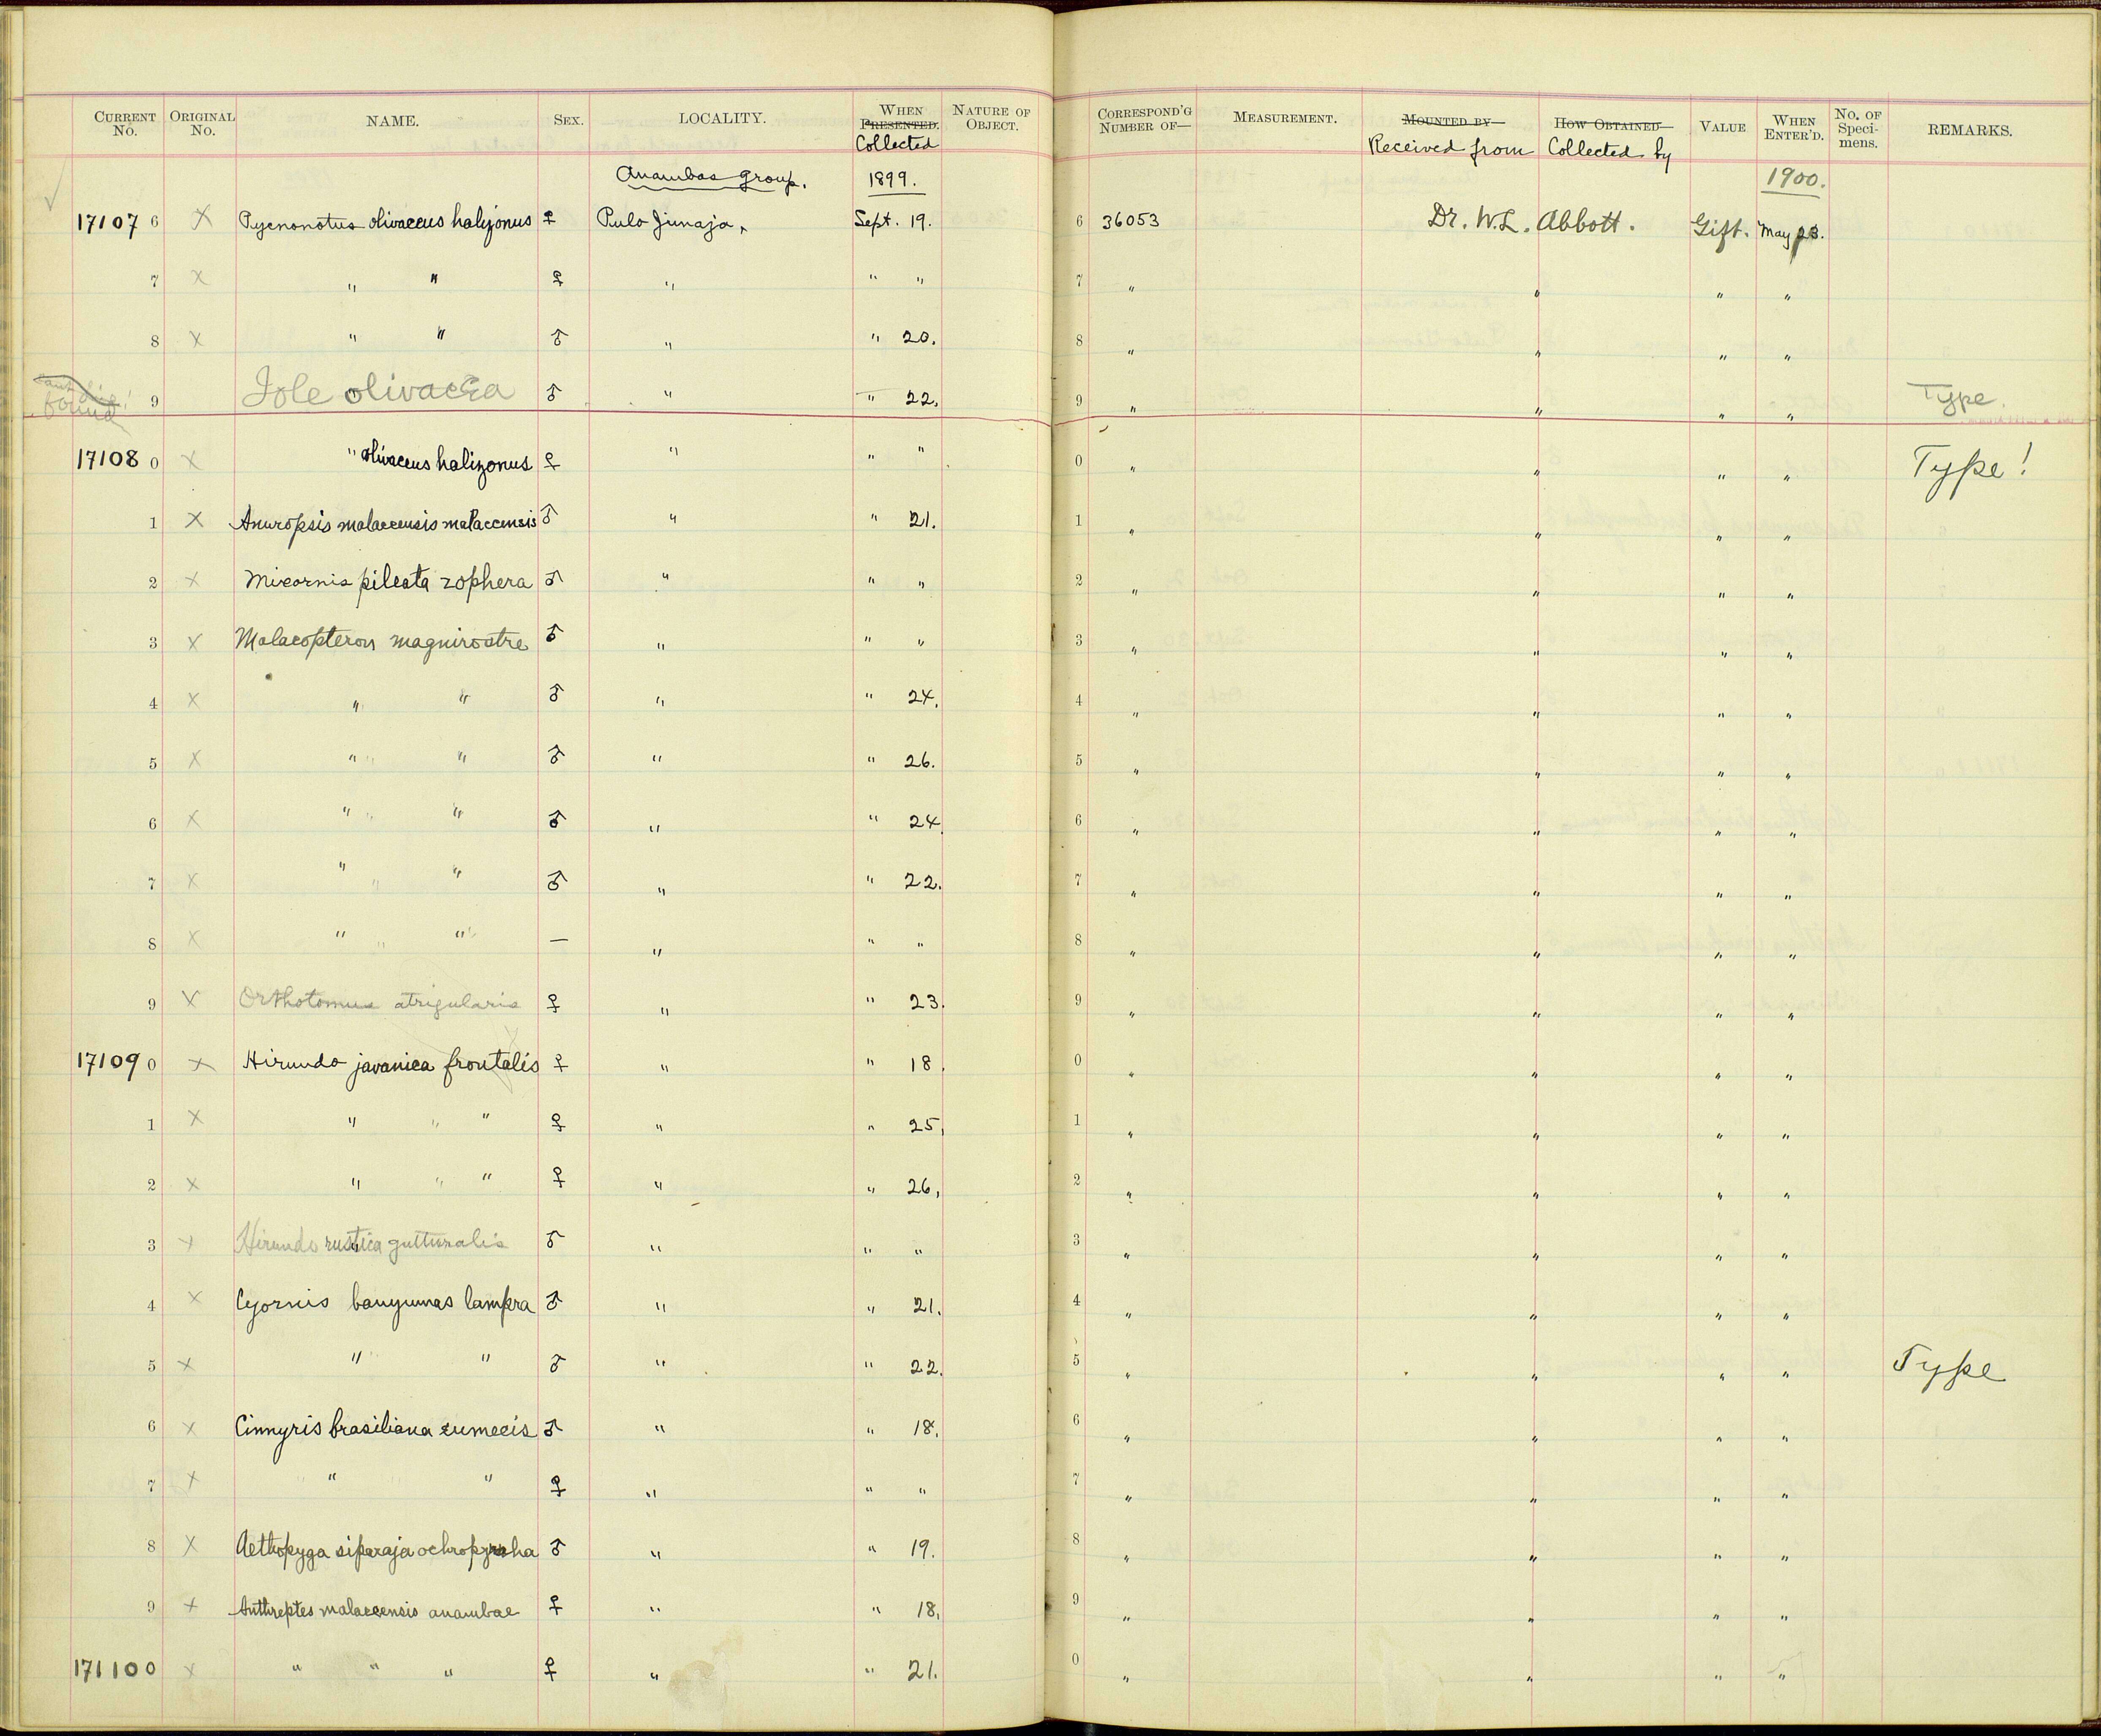 CURRENT No. ORIGINAL No. NAME. SEX. LOCALITY. WHEN PRESENTED. Collected NATURE OF OBJECT. CORRESPOND'G NUMBER OF— MEASUREMENT. MOUNTED BY— Received from HOW OBTAINED— Collected by VALUE WHEN ENTER'D. No. OF Specimens. REMARKS.
Anambas Group. 1899. 1900.
17107 6 X Pycnonotus olivaceus halizonus ♀ Pulo Jimaja, Sept. 19. 6 36053 Dr. W.L. Abbott. Gift. May 23.
7 X " " ♀ " " " 7 " " " "
8 X " " ♂ " " 20. 8 " " " "
found 9 Iole olivacea ♂ " " 22. 9 " " " " Type.
17108 0 X " olivaceus halizonus ♀ " " " 0 " " " " Type!
1 X Anuropsis malaccensis malaccensis ♂ " " 21. 1 " " " "
2 X Mixornis pileata zophera ♂ " " " 2 " " " "
3 X Malacopteron magnirostre ♂ " " " 3 " " " "
4 X " " ♂ " " 24. 4 " " " "
5 X " " " ♂ " " 26. 5 " " " "
6 X " " " ♂ " " 24 6 " " " "
7 X " " " ♂ " " 22. 7 " " " "
8 X " " " — " " " 8 " " " "
9 X Orthotomus atrigularis ♀ " " 23. 9 " " " "
17109 0 X Hirundo javanica frontalis ♀ " " 18. 0 " " " "
1 X " " " ♀ " " 25, 1 " " " "
2 X " " " ♀ " " 26, 2 " " " "
3 X Hirundo rustica gutturalis ♂ " " " 3 " " " "
4 X Cyornis banyumas lampra ♂ " " 21. 4 " " " "
5 X " " ♂ " " 22. 5 " " " " Type
6 X Cinnyris brasiliana eumecis ♂ " " 18. 6 " " " "
7 X " " ♀ " " " 7 " " " "
8 X Aethopyga siparaja ochropyrrha ♂ " " 19. 8 " " " "
9 X Anthreptes malaccensis anambae ♀ " " 18, 9 " " " "
17110 0 X " " " ♀ " " 21. 0 " " " "